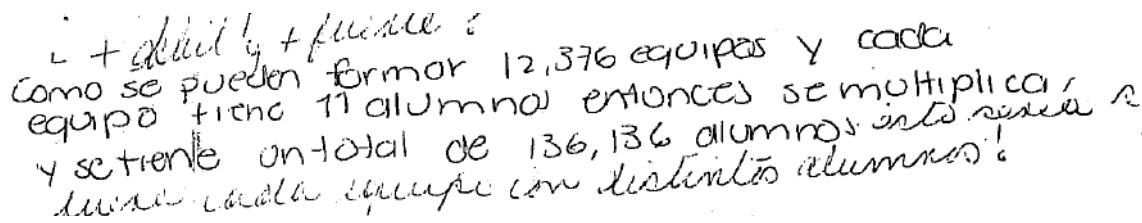 + débil y + fuerte?
Como se pueden formar 12,376 equipos y cada
equipo tiene 11 alumnos entonces se multiplica,
y se tiene un total de 136,136 alumnos. esto sería
cada equipo con distintos alumnos!